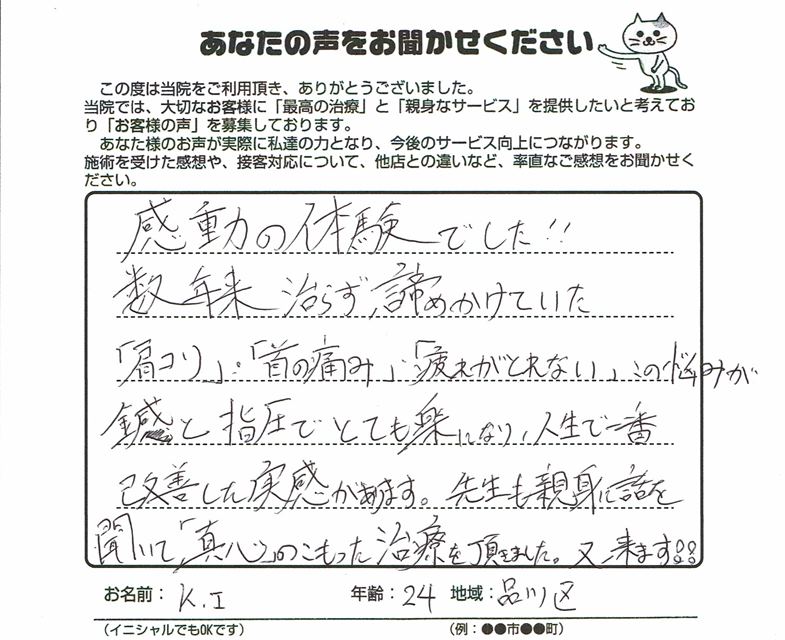 あなたの声をお聞かせください
この度は当院をご利用頂き、ありがとうございました。
当院では、大切なお客様に「最高の治療」と「親身なサービス」を提供したいと考えてお
り「お客様の声」を募集しております。
あなた様のお声が実際に私達の力となり、今後のサービス向上につながります。
施術を受けた感想や、接客対応について、他店との違いなど、率直なご感想をお聞かせく
ださい。
感動の体験でした!!
数年来 治らず、諦めかけていた
「肩コリ」・「首の痛み」・「疲れがとれない」、この悩みが
鍼と指圧でとても楽になり、人生で一番
改善した実感があります。先生も親身に話を
聞いて「真心」のこもった治療を頂きました。又、来ます!!
お名前： K.I 年齢：24 地域：品川区
（イニシャルでもOKです） （例：●●市●●町）